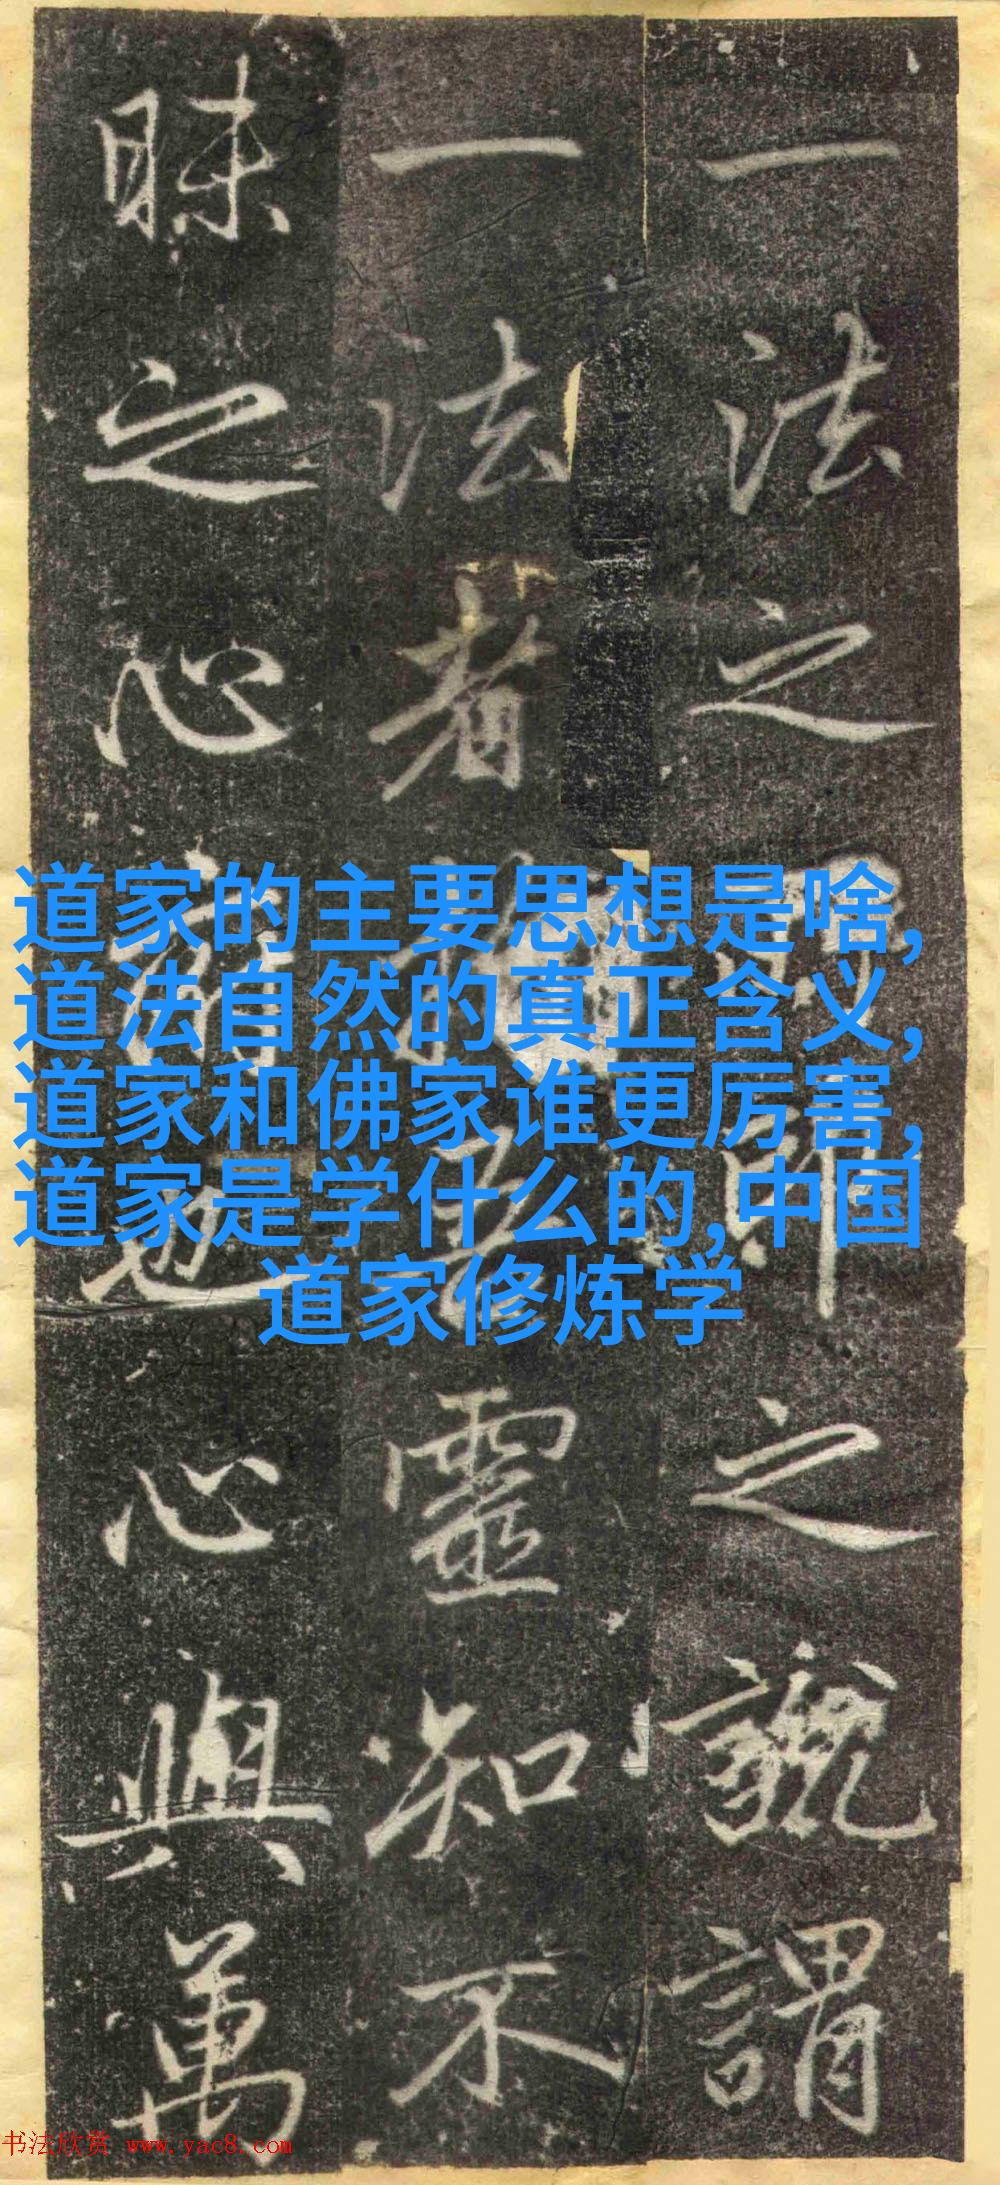 一法之之說謂
一法者靈知不
昧之心也心與萬
道家的主要思想是啥,
道法自然的真正含义,
道家和佛家谁更厉害,
道家是学什么的,中国
道家修炼学
书法欣赏 www.yac8.com